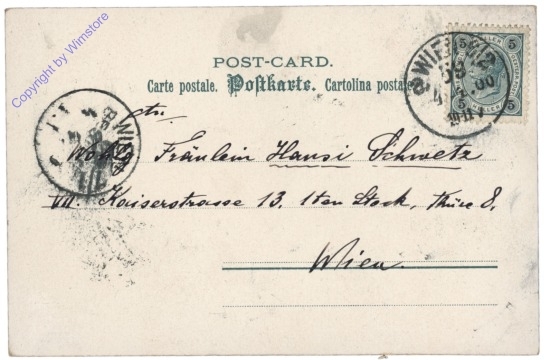 Copyright by Wimstore
POST-CARD.
Carte postale. Postkarte. Cartolina postale
5 5
WIEN
An
Fräulein Hansi Schwetz
VII. Kaiserstrasse 13. 1ten Stock, Thüre 8.
Wien.